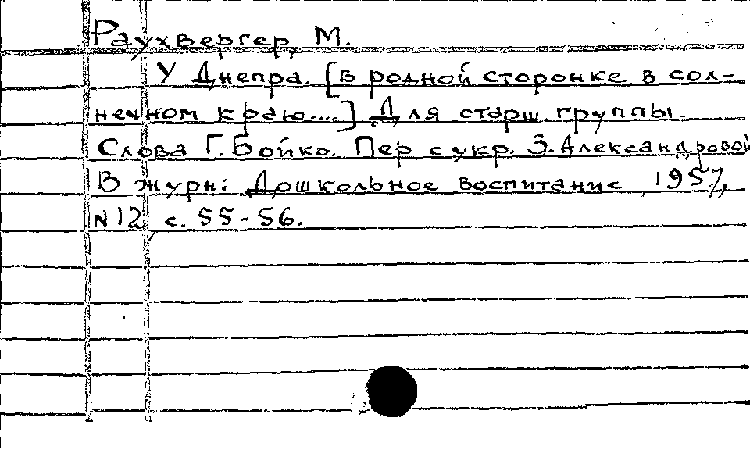 Раухвергер, М.
У Днепра. [В родной сторонке в сол-
нечном краю....] Для старш. группы.
Слова Г. Бойко. Пер. с укр. З. Александровой
В журн: Дошкольное воспитание, 1957,
N12 с. 55-56.